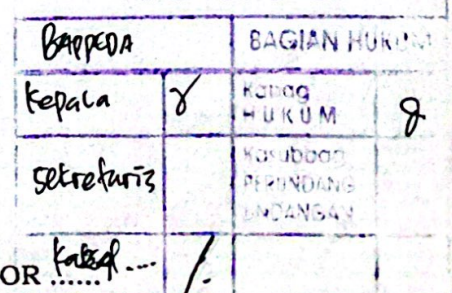 BAPPEDA BAGIAN HUKUM
Kepala Kabag
HUKUM
sekretaris Kasubbag
PERUNDANG
UNDANGAN
OR ......